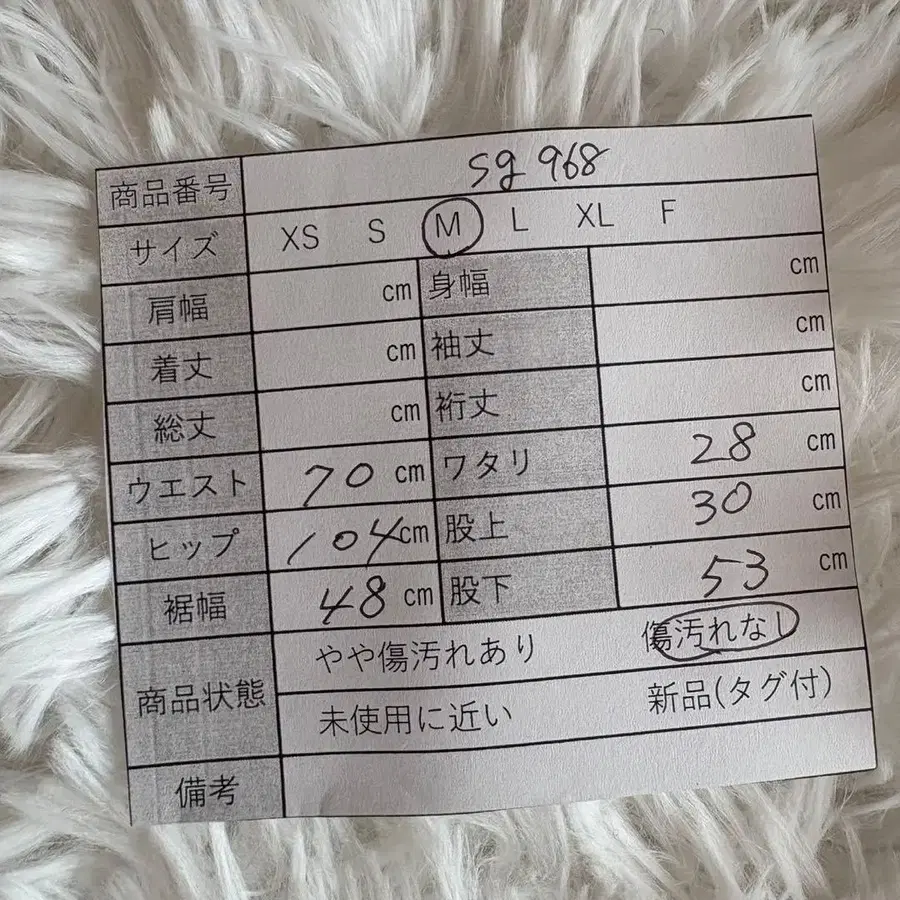 商品番号 sg 968
サイズ XS S M L XL F
肩幅 cm 身幅 cm
着丈 cm 袖丈 cm
総丈 cm 裄丈 cm
ウエスト 70 cm ワタリ 28 cm
ヒップ 104 cm 股上 30 cm
裾幅 48 cm 股下 53 cm
商品状態 やや傷汚れあり 傷汚れなし
未使用に近い 新品(タグ付)
備考